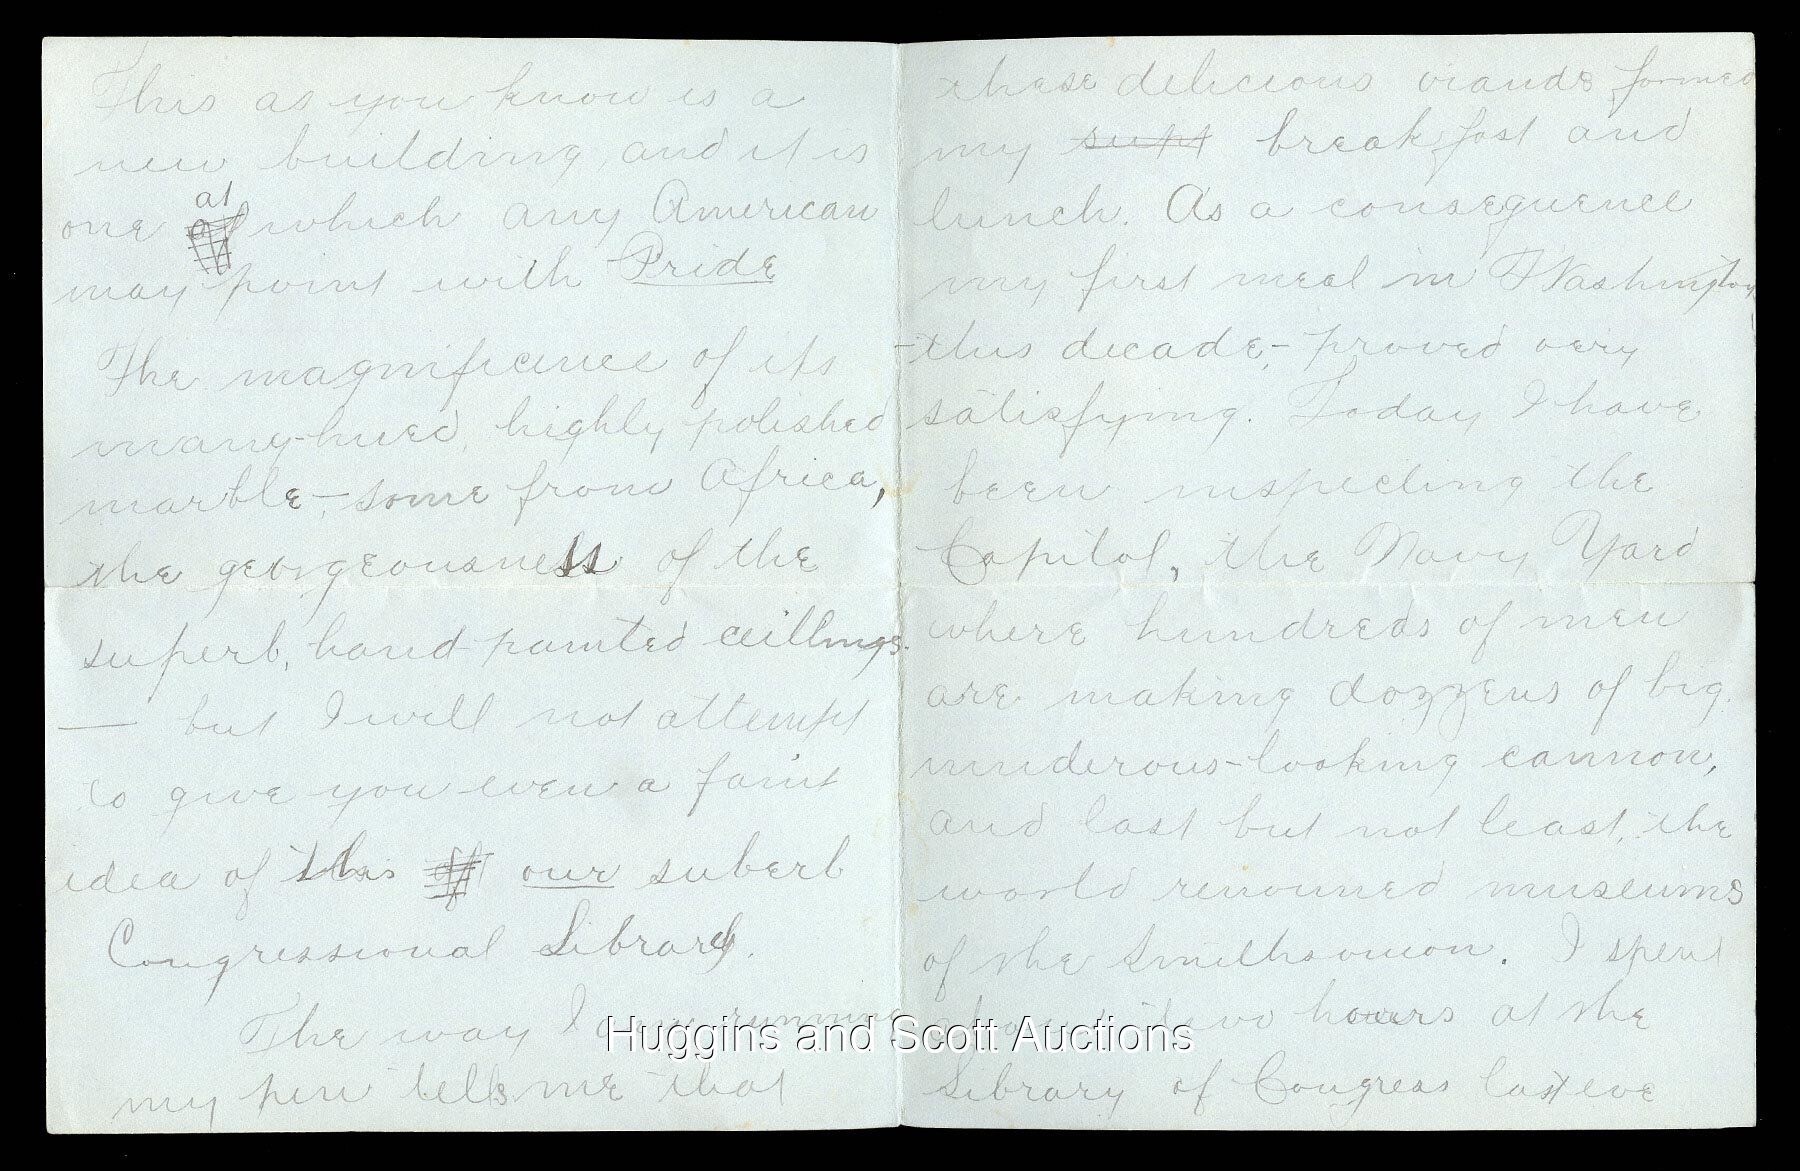 This as you know is a
new building, and it is
one at which any American
may point with Pride
The magnificence of its
many-hued, highly polished
marble,—some from Africa,
the georgeousness of the
superb, hand-painted ceillings.
— but I will not attempt
to give you even a faint
idea of this of our suberb
Congressional Library.
The way I am running
my pen tells me that
these delicious viands formed
my supt breakfast and
lunch. As a consequence
my first meal in Washington
-this decade,- proved very
satisfying. Today I have
been inspecting the
Capitol, the Navy Yard
where hundreds of men
are making dozzens of big
muderous-looking cannon,
and last but not least, the
world renouned museums
of the Smithsonion. I spent
about two hours at the
Library of Congress last eve
Huggins and Scott Auctions